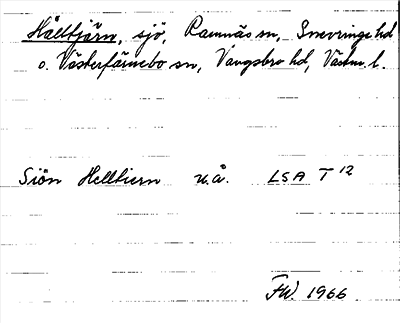 Hälltjärn, sjö, Ramnäs sn, Snevringe hd
o. Västerfärnebo sn, Vangsbro hd, Västm. l.
Siön Helltiern u.å. LSA T 12
FW. 1966